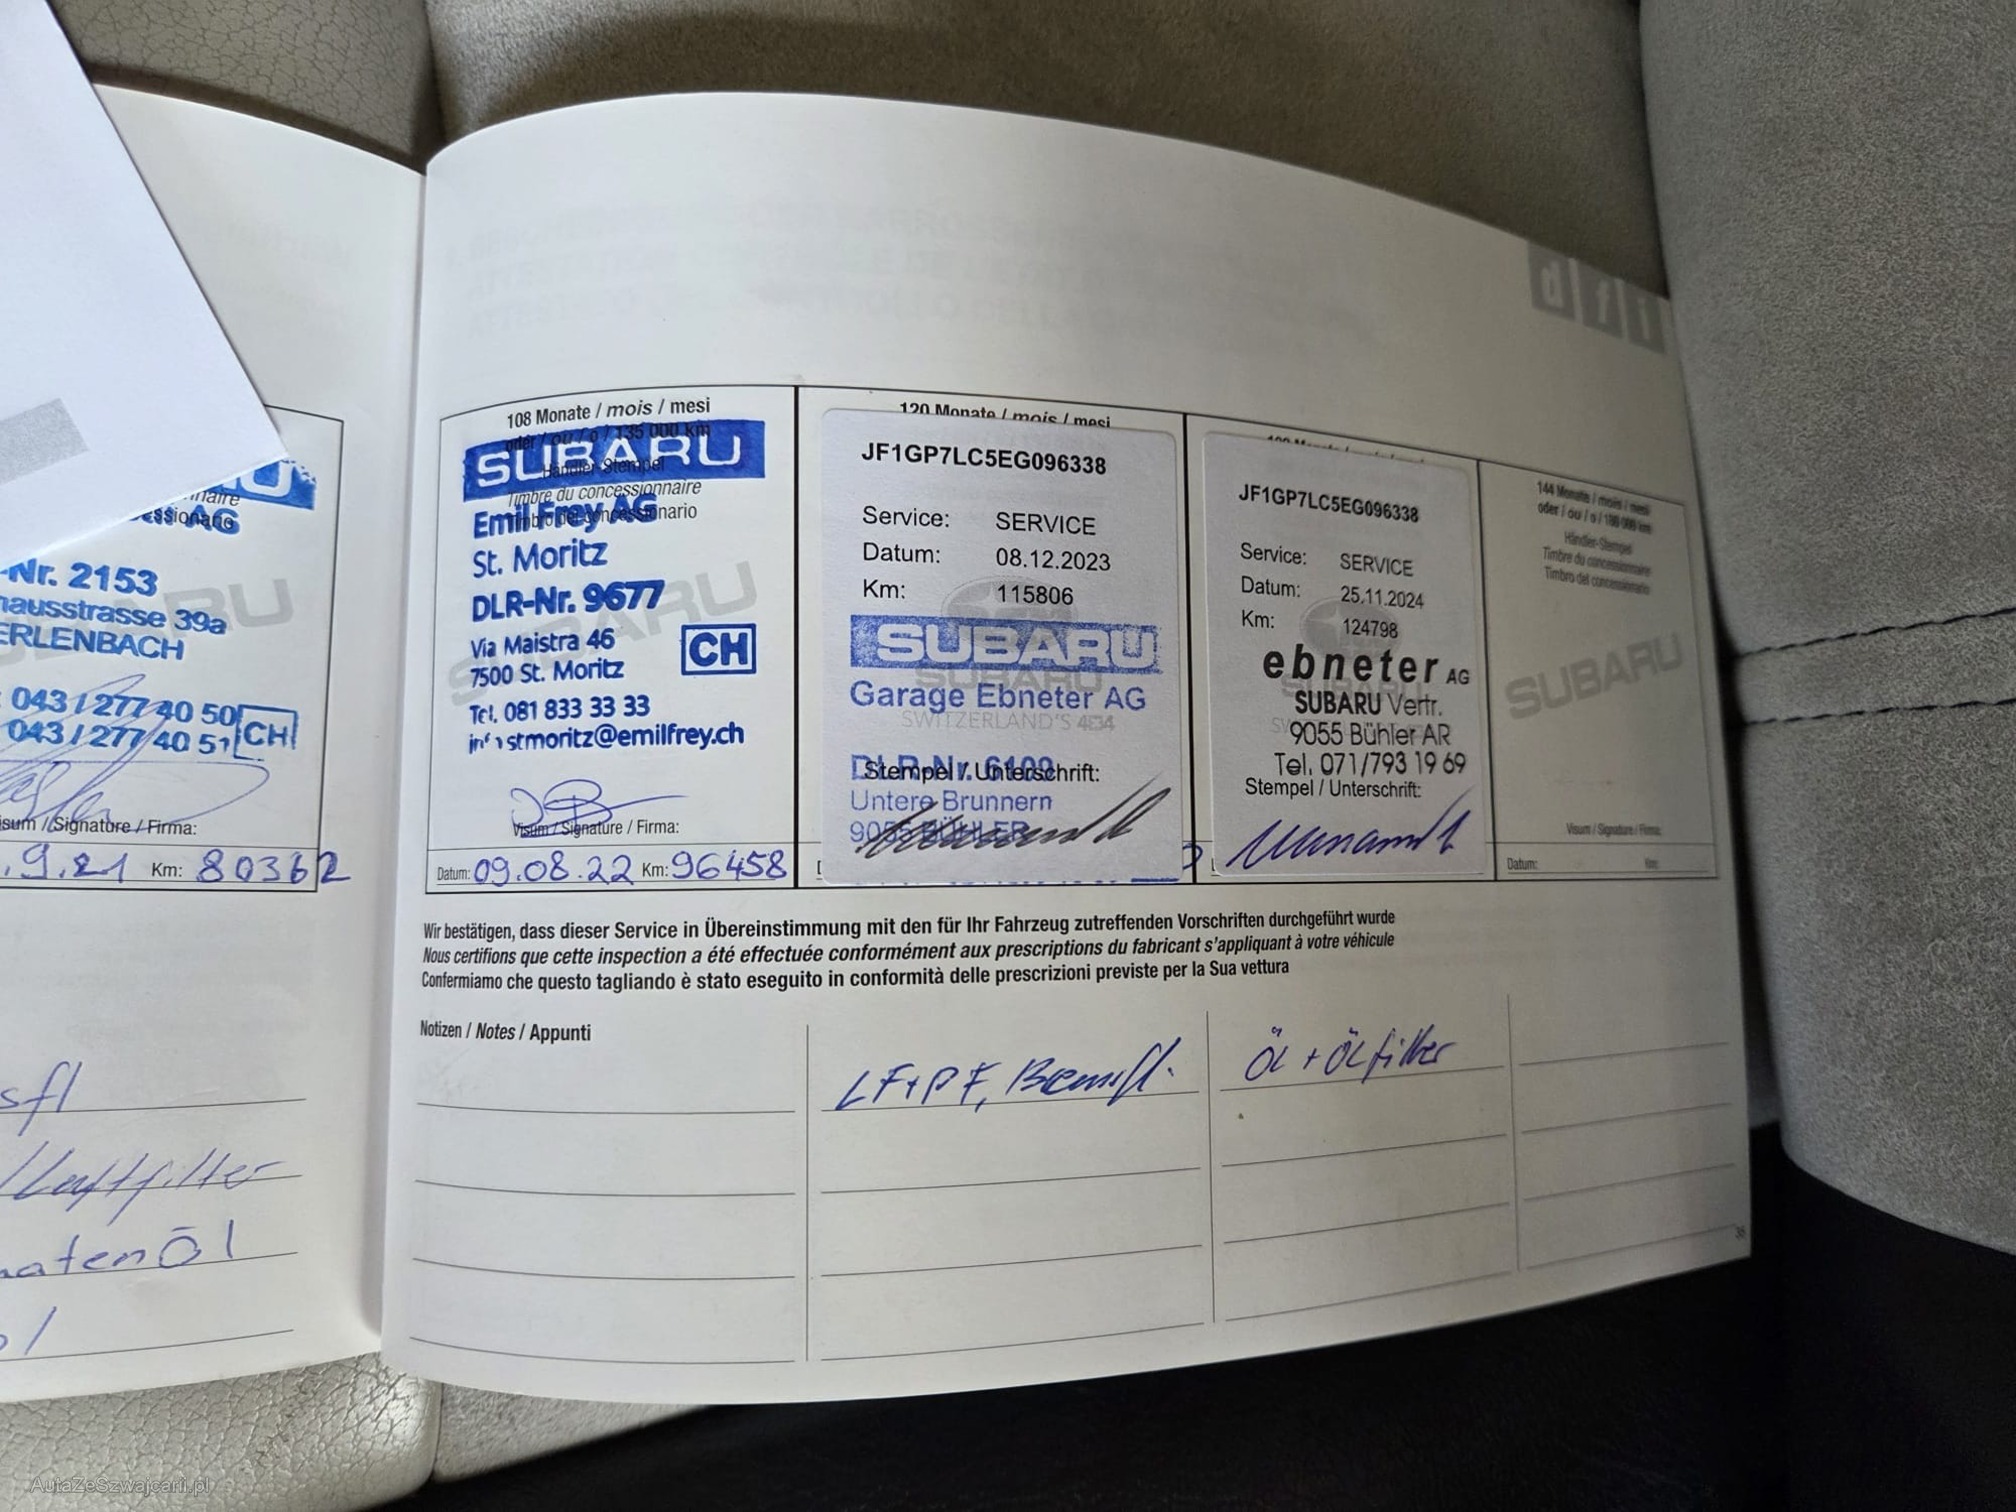 AG
-Nr. 2153
hausstrasse 39a
ERLENBACH
043 / 277 40 50
043 / 277 40 51
CH
isum / Signature / Firma:
.9.21 Km: 80362
sfl
Luftfilter
atenöl
108 Monate / mois / mesi
oder / ou / o / 135 000 km
SUBARU
Händler-Stempel
Timbre du concessionnaire
Timbro del concessionario
Emil Frey AG
St. Moritz
DLR-Nr. 9677
Via Maistra 46
7500 St. Moritz
CH
Tel. 081 833 33 33
stmoritz@emilfrey.ch
Visum / Signature / Firma:
Datum: 09.08.22 Km: 96458
120 Monate / mois / mesi
JF1GP7LC5EG096338
Service: SERVICE
Datum: 08.12.2023
Km: 115806
SUBARU
Garage Ebneter AG
SWITZERLAND'S 4x4
DLR-Nr. 6109
Stempel / Unterschrift:
Untere Brunnern
9055 BÜHLER
JF1GP7LC5EG096338
Service: SERVICE
Datum: 25.11.2024
Km: 124798
ebneter AG
SUBARU Vertr.
9055 Bühler AR
Tel. 071/793 19 69
Stempel / Unterschrift:
144 Monate / mois / mesi
oder / ou / o / 180 000 km
Händler-Stempel
Timbre du concessionnaire
Timbro del concessionario
SUBARU
Visum / Signature / Firma:
Datum: Km:
d f i
Wir bestätigen, dass dieser Service in Übereinstimmung mit den für Ihr Fahrzeug zutreffenden Vorschriften durchgeführt wurde
Nous certifions que cette inspection a été effectuée conformément aux prescriptions du fabricant s'appliquant à votre véhicule
Confermiamo che questo tagliando è stato eseguito in conformità delle prescrizioni previste per la Sua vettura
Notizen / Notes / Appunti
LF+PF, Bremsfl.
Öl + Ölfilter
35
AutaZeSzwajcarii.pl